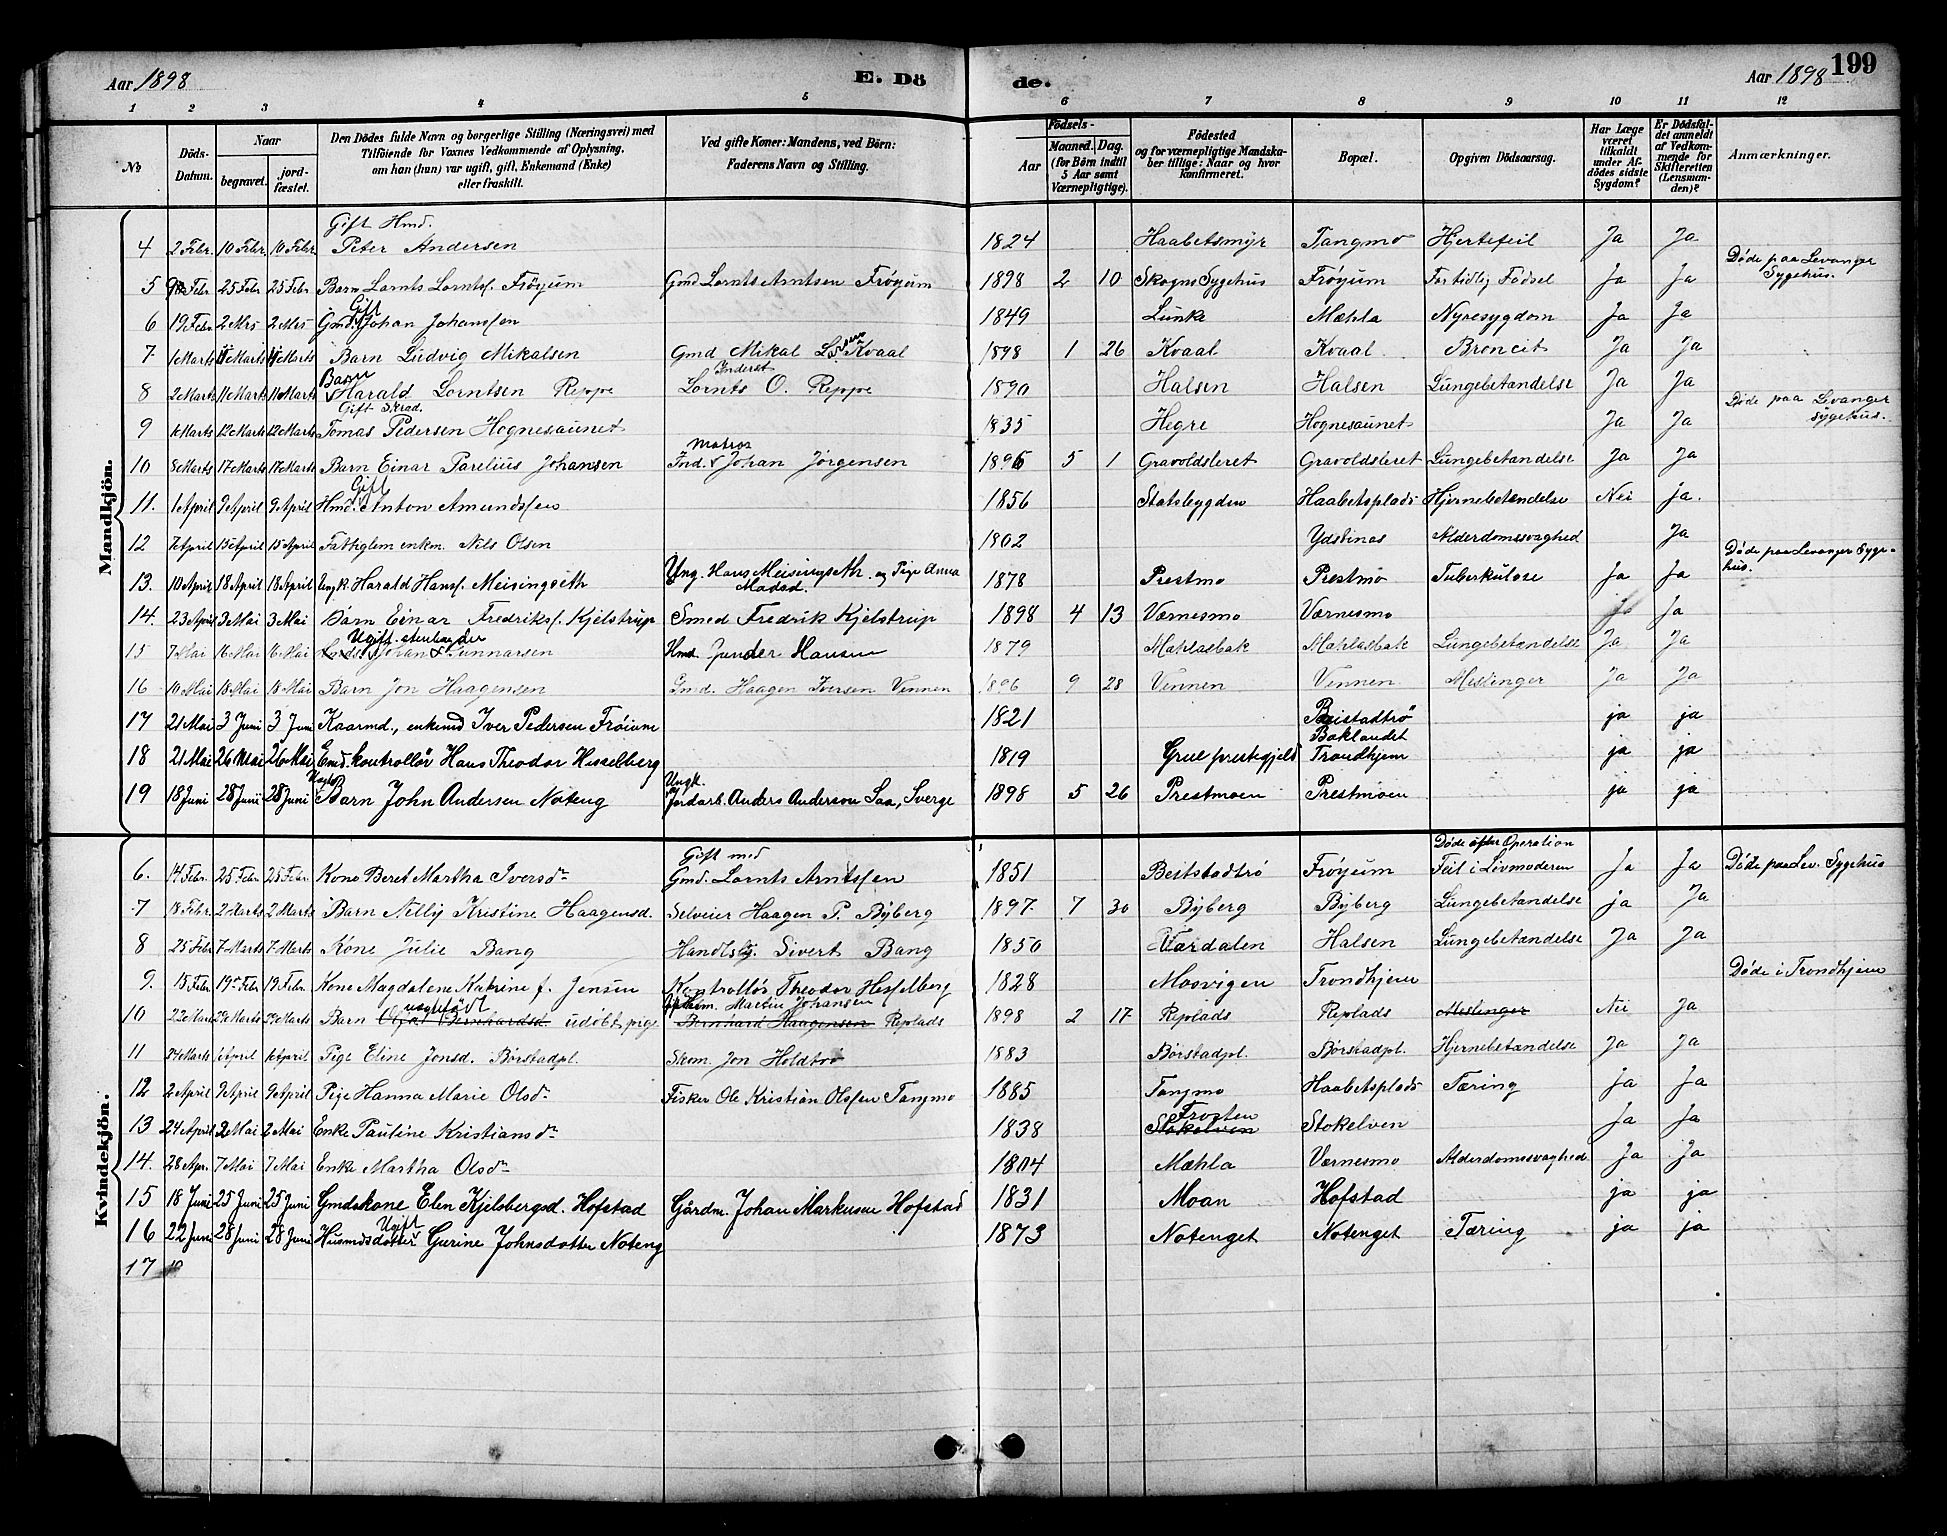 Aar 1898
E. Dö
de.
Aar 1898
199
1 2 3 4 5 6 7 8 9 10 11 12
No
Döds-Datum.
Naar
begravet.
jord-fæstet.
Den Dödes fulde Navn og borgerlige Stilling (Næringsvei) med
Tilföiende for Voxnes Vedkommende af Oplysning,
om han (hun) var ugift, gift, Enkemand (Enke)
eller fraskilt.
Ved gifte Koner: Mandens, ved Börn:
Faderens Navn og Stilling.
Födsels-
Aar
Maaned. Dag.
(for Börn indtil
5 Aar samt
Værnepligtige).
Födested
og for værnepligtige Mandska-
ber tillige: Naar og hvor
konfirmeret.
Bopæl.
Opgiven Dödsaarsag.
Har Læge
været
tilkaldt
under Af-
dödes sidste
Sygdom?
Er Dödsfal-
det anmeldt
af Vedkom-
mende for
Skifteretten
(Lensman-
den)?
Anmærkninger.
Mandkjön.
Gift Hmd.
4 2 Febr. 10 Febr 10 Febr Peter Andersen 1824 Haabetsmyr Tangmo Hjertefeil Ja Ja
5 Febr 25 Febr 25 Febr. Barn Lornts Lorntsf. Fröyum Gmd Lornts Arntsen Fröyum 1898 2 10 Skogns Sygehus Fröyum For tidlig Födsel Ja Ja Døde paa Levanger Sygehus.
6 19 Febr 2 Mrs 2 Mrs Gmd. Gift Johan Johansen 1849 Lunke Mæhla Nyresygdom Ja Ja
7 1 Marts Marts Marts Barn Ludvig Mikalsen Gmd Mikal Kvaal 1898 1 26 Kvaal Kvaal Broncit Ja Ja
8 2 Marts 11 Marts 11 Marts Barn Harald Lorntsen Reppe Inderst Lornts O. Reppe 1890 Halsen Halsen Lungebetændelse Ja Ja
Gift Skrad.
9 Marts 12 Marts 12 Marts Tomas Pedersen Hognesaunet 1835 Hegre Hognesaunet Ja Ja Døde paa Levanger Sygehus.
10 8 Marts 17 Marts 17 Marts Barn Einar Parelius Johansen Ind. & Matros Johan Jørgensen 1896 5 1 Gravoldsleret Gravoldsleret Lungebetændelse Ja Ja
11. 1 April 9 April 9 April Hmd. Gift Anton Amundsen 1856 Statsbygden Haabetsplads Hjernebetændelse Nei ja.
12 7 April 15 April 15 April Fattiglem enkm. Nils Olsen 1802 Ydstinas Alderdomssvaghed Ja
13. 10 April 18 April 18 April Ungk. Harald Hansf. Meisingseth Ung. Hans Meisingseth. og Pige Anna Madsd. 1878 Prestmo Prestmo Tuberkulose Ja Ja Døde paa Levanger Sygehus.
14. 23 April 3 Mai 3 Mai Barn Einar Fredriksf. Kjelstrup Smed Fredrik Kjelstrup 1898 4 13 Værnesmo Værnesmo Ja Ja
15 7 Mai 16 Mai 16 Mai Ugift Johan Gunnarsen Hmd. Gunder Hansen 1879 Mæhlasbak Mæhlasbak Lungebetændelse Ja Ja
16 10 Mai 18 Mai 18 Mai Barn Jon Haagensen Gmd. Haagen Iversen Vennen 1896 9 28 Vennen Vennen Meslinger Ja Ja
17 21 Mai 3 Juni 3 Juni Kaarmd., enkemd Iver Pedersen Fröiune 1821 Beistadtrö ja ja
18 21 Mai 26 Mai 26 Mai Emd. kontrollör Hans Theodor Hesselberg 1819 Grue prestegjeld Baklandet Trondhjem ja ja
19 18 Juni 28 Juni 28 Juni Barn John Andersen Noteng Ungk. Jordarb. Anders Anderson Saa, Sverge 1898 5 26 Prestmoen Prestmoen ja ja
Kvindekjön.
6. 14 Febr. 25 Febr. 25 Febr. Kone Beret Martha Iversdr Gift med Gmd. Lornts Arntsen 1851 Beitstadtrö Fröyum Døde efter Operation Feil i Livmoderen Ja Ja Døde paa Lev. Sygehus
7 18 Febr. 2 Marts 2 Marts Barn Nelly Kristine Haagensd. Selveier Haagen P. Byberg 1897 7 30 Byberg Byberg Lungebetændelse ja Ja
8 25 Febr 7 Marts 7 Marts Kone Julie Bang Handlsbg. Sivert Bang 1850 Værdalen Halsen Lungebetændelse Ja Ja
9. 15 Febr. 19 Febr. 19 Febr. Kone Magdalene Katrine f. Jensen Kontrollör Theodor Hesselberg 1828 Mosvigen Trondhjem Døde i Trondhjem
10 22 Mars 29 Marts 29 Marts Barn uægtefödt udöbt pige Martin Johansen Bernhard Haagensen Replads 1898 2 17 Replads Replads Meslinger Nei Ja
11 24 Marts 1 April 1 April Pige Eline Jonsd. Börstadpl. Skom. Jon Holdtrö 1883 Börstadpl. Börstadpl. Hjernebetændelse Ja Ja
12 2 April 9 April 9 April Pige Hanna Marie Olsdr. Fisker Ole Kristian Olsen Tangmo 1885 Tangmo Haabetsplads Tæring Ja Ja
13 24 April 2 Mai 2 Mai Enke Pauline Kristiansdr. 1838 Frosten Stokelven Stokelven Ja Ja
14. 28 Apr. 7 Mai 7 Mai Enke Martha Olsdr. 1804 Mæhla Værnesmo Alderdomssvaghed Ja Ja
15 18 Juni 25 Juni 25 Juni Gmdskone Elen Kjelsbergsd. Hofstad Gårdm. Johan Markusen Hofstad 1831 Moan Hofstad ja ja
16 22 Juni 28 Juni 28 Juni Husmdsdatter Ugift Gurine Johnsdotter Noteng 1873 Notenget Notenget Tæring ja ja
17